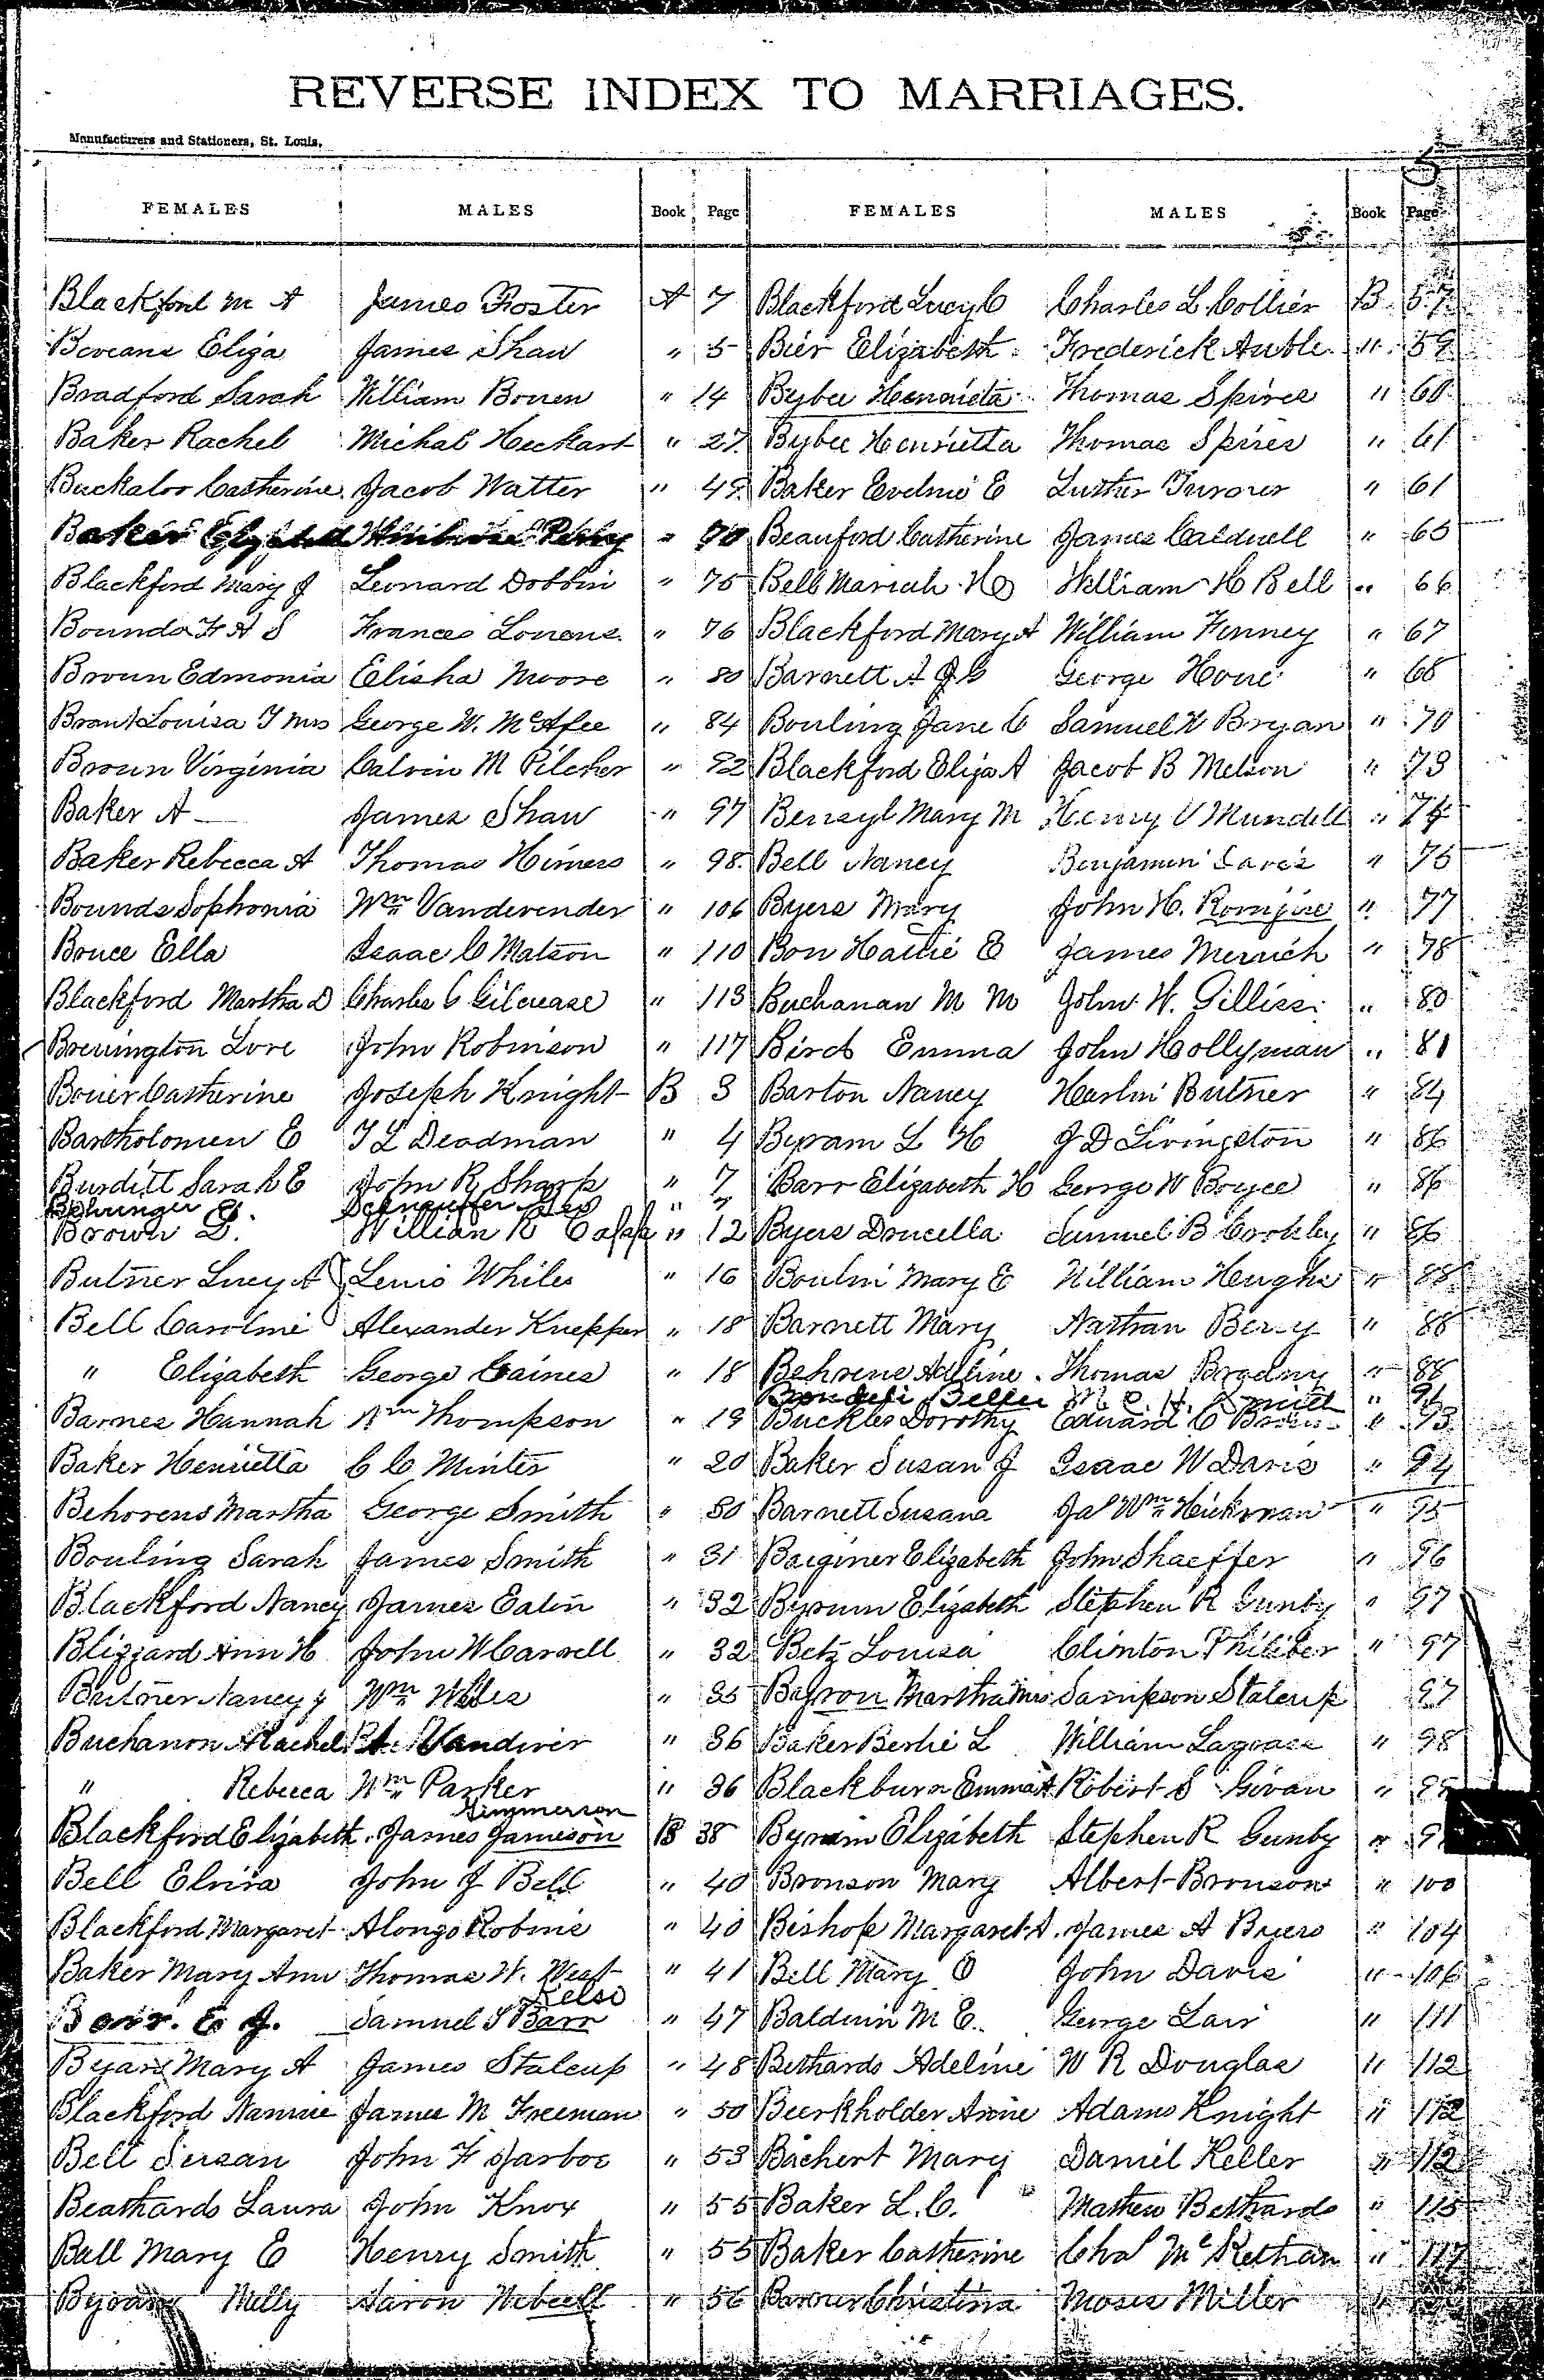 REVERSE INDEX TO MARRIAGES.
Manufacturers and Stationers, St. Louis.
FEMALES MALES Book Page FEMALES MALES Book Page
Blackford M A James Foster A 7 Blackford Lucy C Charles L Collier B 57
Beveans Eliza James Shaw " 5 Bier Elizabeth Frederick Auble " 59
Bradford Sarah William Bowen " 14 Bybee Henrieta Thomas Spires " 60
Baker Rachel Michal Heckart " 27 Bybee Henrietta Thomas Spires " 61
Buckaloo Catherine Jacob Watter " 49 Baker Eveline E Luther Turner " 61
Baker " 70 Beauford Catherine James Caldwell " 65
Blackford Mary J Leonard Dobbin " 75 Bell Mariah William H Bell " 66
Bounds F A S Frances " 76 Blackford Mary A William Finney " 67
Brown Edmonia Elisha Moore " 80 Barnett A J G George Howe " 68
Brant Louisa J Mrs George W. McAfee " 84 Bowling Jane C Samuel W Bryan " 70
Brown Virginia Calvin M Pilcher " 92 Blackford Eliza A Jacob B Melson " 73
Baker A — James Shaw " 97 Bensyl Mary M Henry V Mundell " 74
Baker Rebecca A Thomas Himers " 98 Bell Nancy Benjamin " 75
Bounds Sophonia Wm Vandevender " 106 Byers Mary John H. Romjue " 77
Bouce Ella Isaac C Matson " 110 Bon Hattie E James Merrich " 78
Blackford Martha D Charles C Gilcrease " 113 Buchanan M M John W. Gilliss " 80
Brewington Love John Robinson " 117 Birch Emma John Hollyman " 81
Bower Catherine Joseph Knight B 3 Barton Nancy Harlin Butner " 84
Bartholomew E T L Deadman " 4 Byram L H J D Livingston " 86
Burditt Sarah E John R Sharp " 7 Barr Elizabeth H George W Boyce " 86
Behringer E. Schnauffer Geo " 7
Brown D. William R Capp " 12 Byers Drucella Samuel B Corkley " 86
Butner Lucy A Lewis Whiles " 16 Boulin Mary E William Hughs " 88
Bell Caroline Alexander Knepper " 18 Barnett Mary Nathan Berry " 88
" Elizabeth George Gaines " 18 Behrens Adeline Thomas " 88
Beller M C H. Smith "
Barnes Hannah Wm Thompson " 19 Buckles Dorothy Edward C " 93
Baker Henrietta C C Minter " 20 Baker Susan J Isaac W Davis " 94
Behorens Martha George Smith " 30 Barnett Susana Jas Wm Hickman " 95
Bouling Sarah James Smith " 31 Baiginer Elizabeth John Shaeffer " 96
Blackford Nancy James Eatin " 32 Byrum Elizabeth Stephen R Gunby " 97
Blizzard Ann H John W Carrell " 32 Betz Louisa Clinton Philiber " 97
Butner Nancy J Wm Wiles " 35 Bafron Martha Mrs Sampson Stalcup 97
Buchanon Rachel Vandiver " 36 Baker Bertie L William " 98
" Rebecca Wm Parker " 36 Blackburn Emma A Robert S Givan "
Kimmerson
Blackford Elizabeth James Jameson B 38 Byrum Elizabeth Stephen R Gunby "
Bell Elvira John J Bell " 40 Bronson Mary Albert Bronson " 100
Blackford Margaret Alonzo Robins " 40 Bishop Margaret A. James A Byers " 104
Baker Mary Ann Thomas W. West " 41 Bell Mary O John Davis " 106
Kelso
Barr. E J. Samuel S Barr " 47 Baldwin M E. George Lair " 111
Byars Mary A James Stalcup " 48 Bethards Adeline W R Douglas " 112
Blackford Nannie James M Freeman " 50 Beerkholder Annie Adams Knight " 112
Bell Susan John F Jarboe " 53 Bachert Mary Daniel Keller " 112
Beathards Laura John Knox " 55 Baker L. C. Mathew Bethards " 115
Ball Mary E Henry Smith " 55 Baker Catherine Chas McKethan " 117
Milly Aaron " 56 Christina Moses Miller "